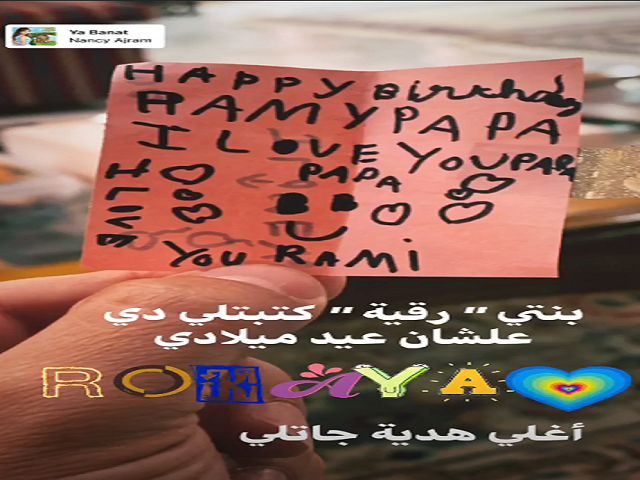 Ya Banat
Nancy Ajram
HAPPY Birthday
RAMY PAPA
I LOVE YOU PAPA
PAPA
I LIVE
YOU RAMi
بنتي " رقية " كتبتلي دي
علشان عيد ميلادي
ROKAYA
أغلي هدية جاتلي